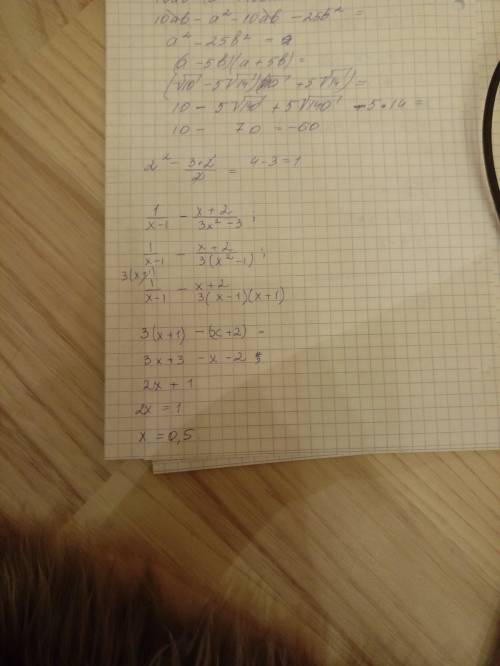 10ab - a² - 10ab - 25b² =
a² - 25b² =
- 5b)(a + 5b) =
(√10 - 5√14)(√10 + 5√14) =
10 - 5√140 + 5√140 - 5·14 =
10 - 70 = -60
2² - (3·2)/2 = 4-3 = 1
1/(x-1) - (x+2)/(3x²-3) ;
1/(x-1) - (x+2)/(3(x²-1)) ;
1/(x-1) - (x+2)/(3(x-1)(x+1))
3(x+1) - (x+2) -
3x+3 - x - 2
2x + 1
2x = 1
x = 0,5